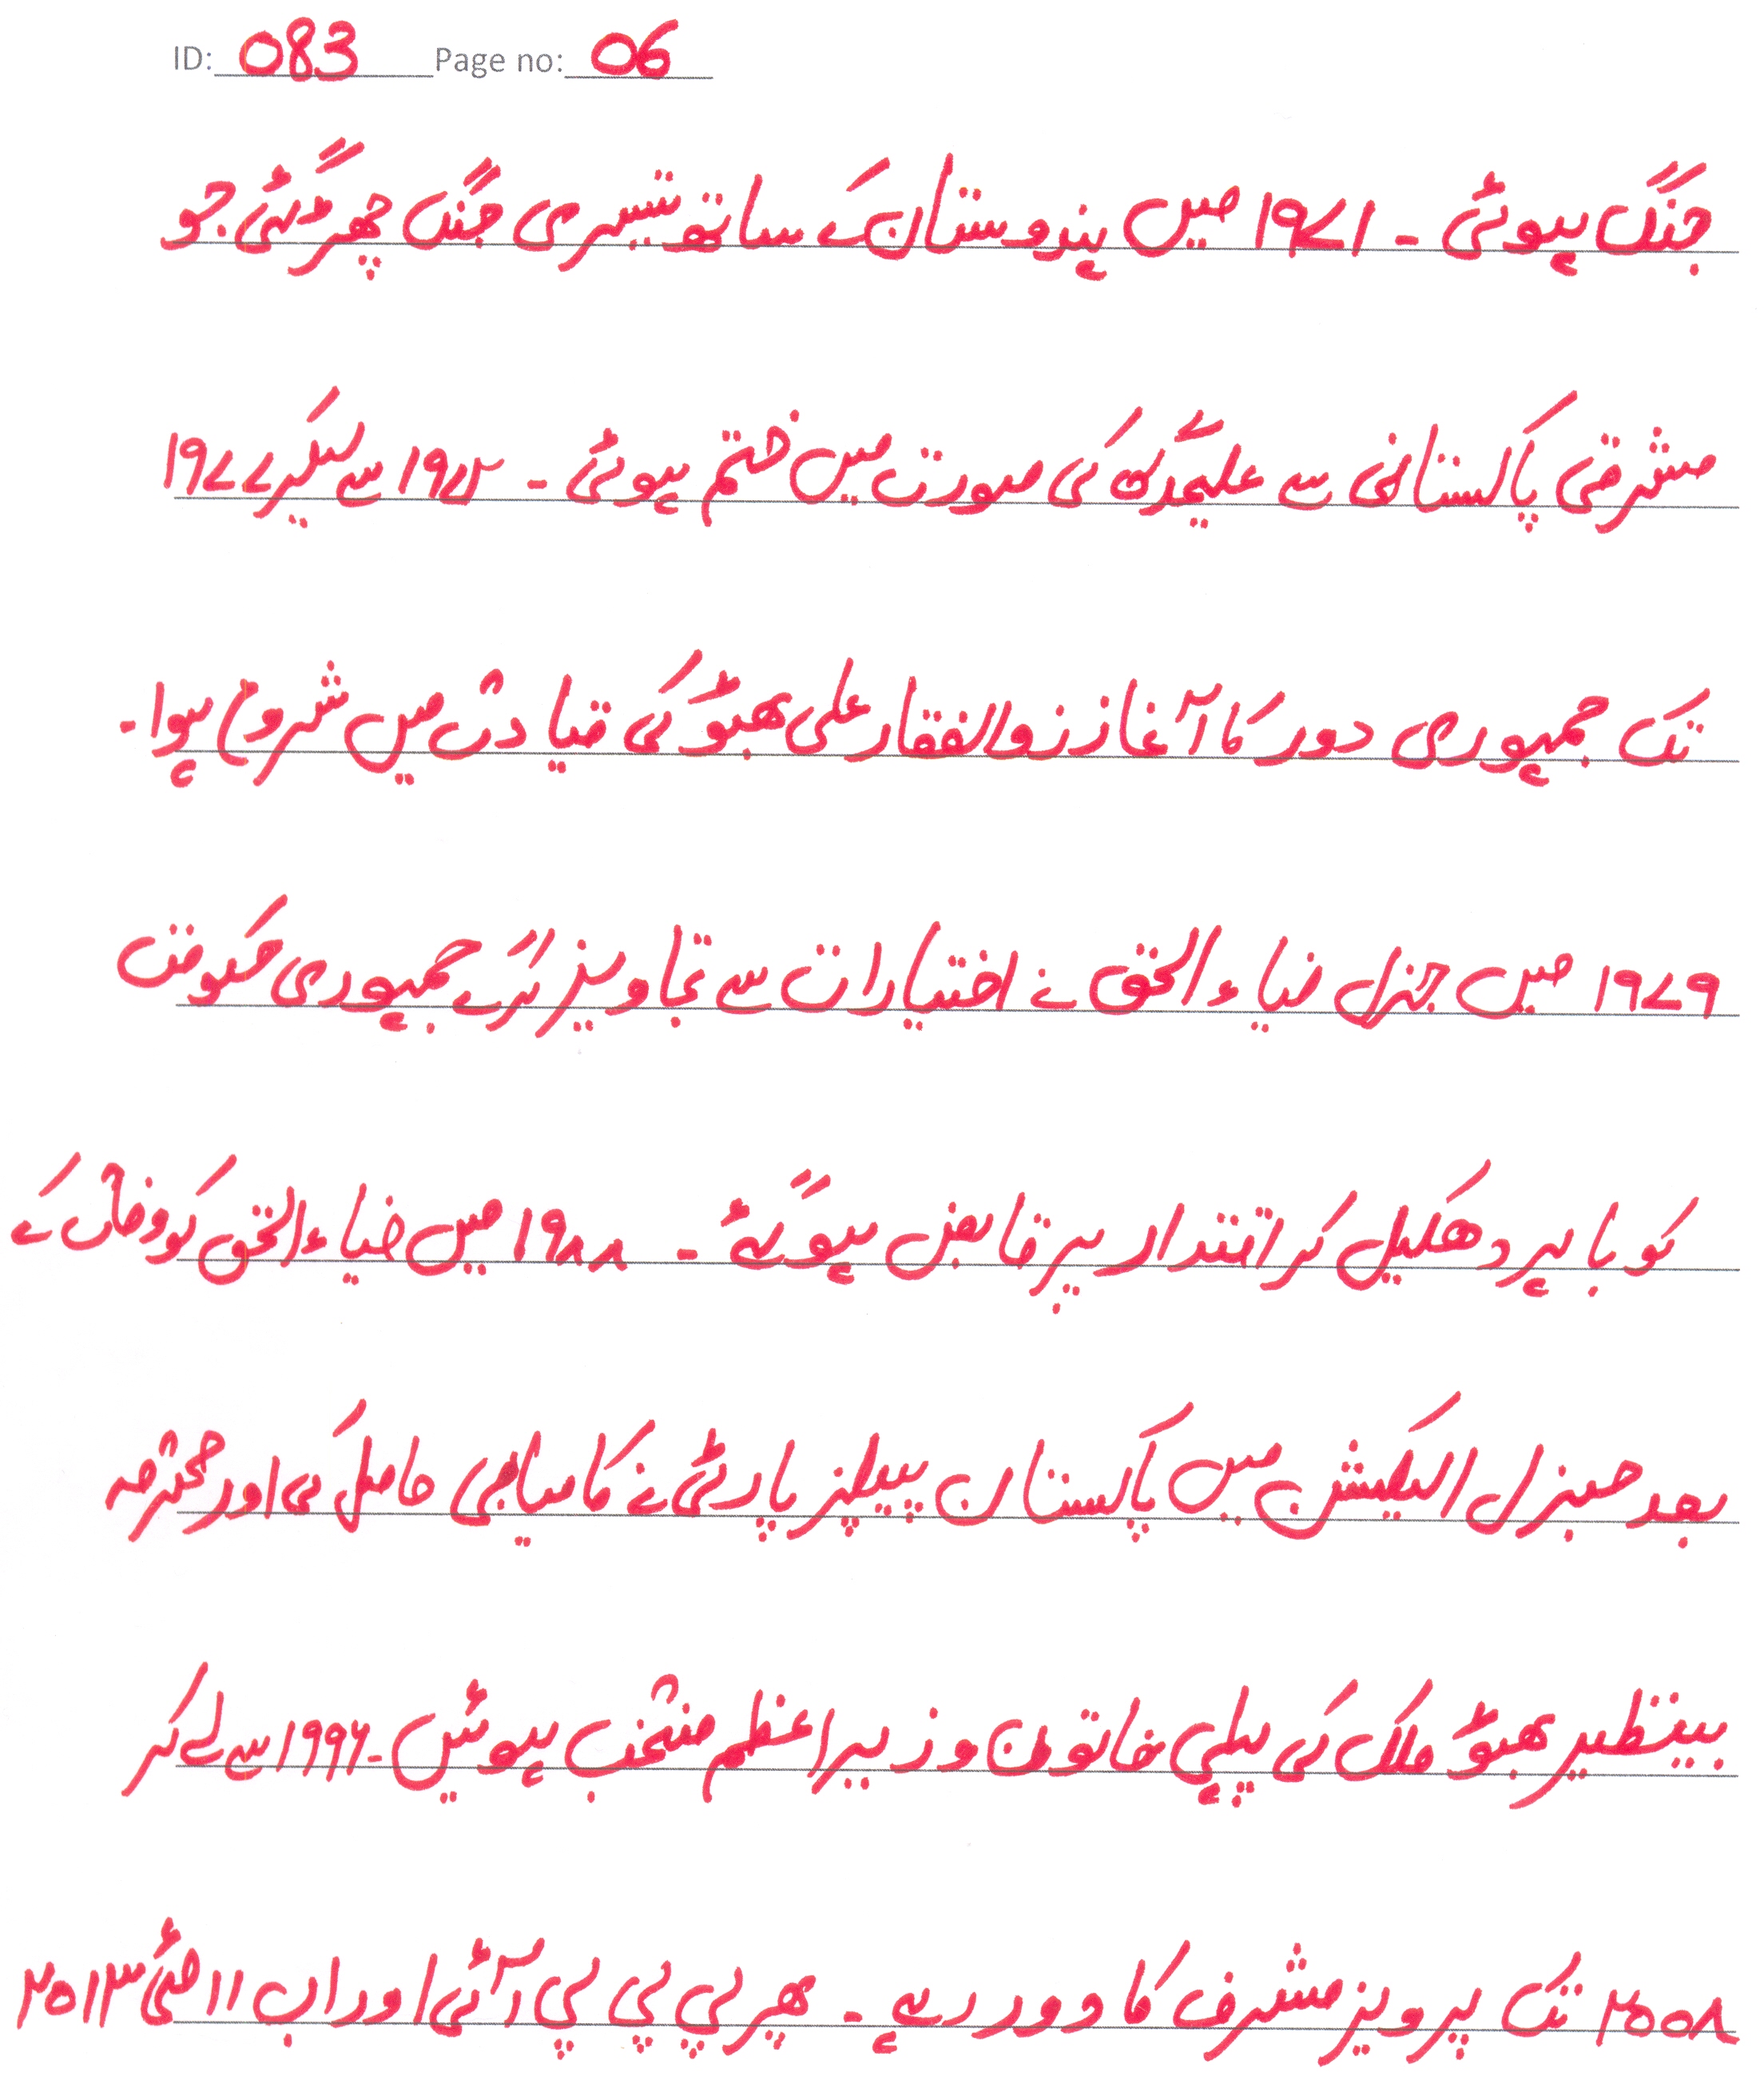 ID: 083 Page no: 06
جنگ ہوئی ۔ ۱۹۷۱ میں ہندوستان کے ساتھ تیسری جنگ چھڑ گئی جو
مشرقی پاکستانی سے علیحدگی کی صورت میں ختم ہوئی ۔ ۱۹۷۲ سے لیکر ۱۹۷۷
تک جمہوری دور کا آغاز ذوالفقار علی بھٹو کی قیادت میں شروع ہوا ۔
۱۹۷۹ میں جنرل ضیاء الحق نے اختیارات سے تجاویز کرکے جمہوری حکومت
کو باہر دھکیل کر اقتدار پر قابض ہوگئے ۔ ۱۹۸۸ میں ضیاء الحق کو وفات کے
بعد جنرل الیکشن میں پاکستان پیپلز پارٹی نے کامیابی حاصل کی اور محترمہ
بینظیر بھٹو ملک کی پہلی خاتون وزیراعظم منتخب ہوئیں ۔ ۱۹۹۶ سے لے کر
۲۰۰۸ تک پرویز مشرف کا دور رہے ۔ پھر پی پی پی آئی اور اب ۱۱ مئی ۲۰۱۳